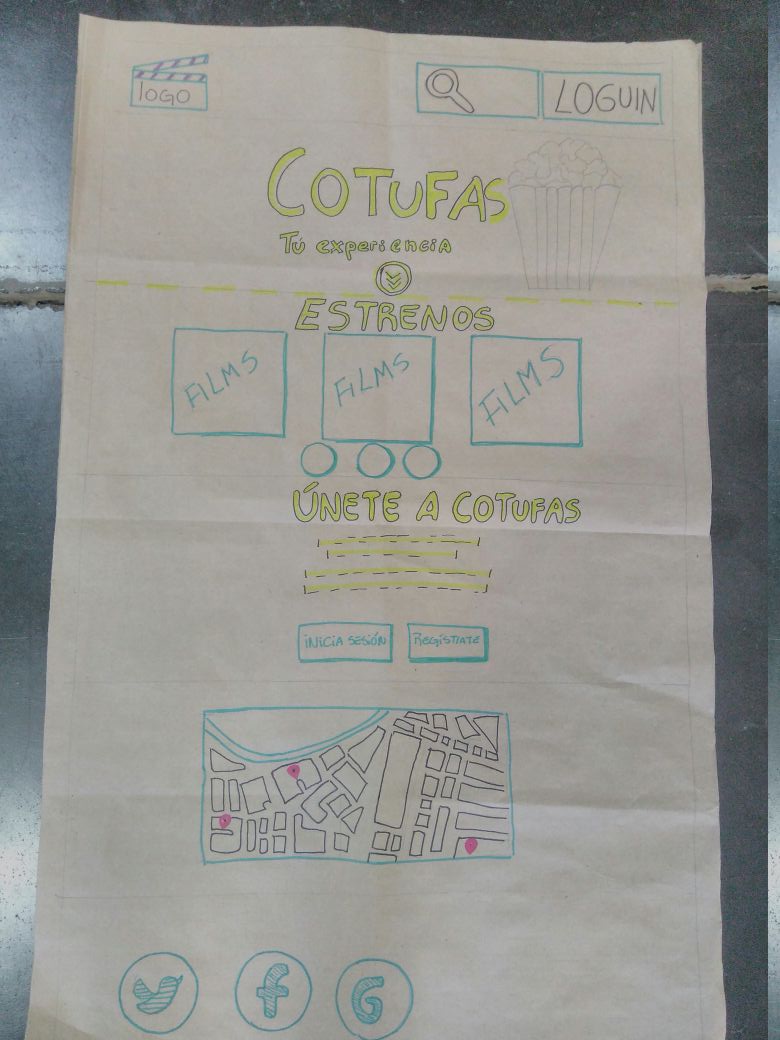 LOGO
LOGUIN
COTUFAS
Tú experiencia
ESTRENOS
FILMS FILMS FILMS
ÚNETE A COTUFAS
INICIA SESIÓN REGISTRATE
f G